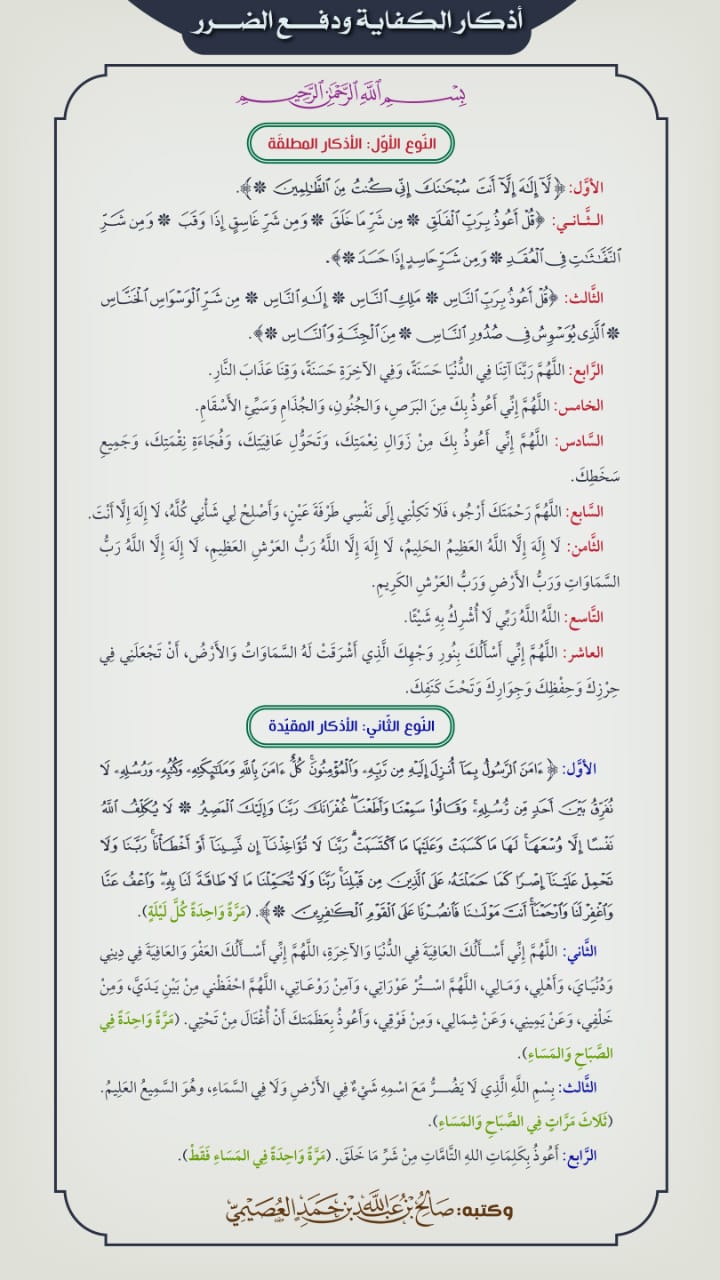 أذكار الكفاية ودفـــع الضـــرر
بِسْمِ ٱللَّهِ ٱلرَّحْمَٰنِ ٱلرَّحِيمِ
النّوع الأوّل: الأذكار المطلقَة
الأوَّل: ﴿لَّآ إِلَٰهَ إِلَّآ أَنتَ سُبْحَٰنَكَ إِنِّي كُنتُ مِنَ ٱلظَّٰلِمِينَ ❊﴾.
الـثَّـانـي: ﴿قُلْ أَعُوذُ بِرَبِّ ٱلْفَلَقِ ❊ مِن شَرِّ مَا خَلَقَ ❊ وَمِن شَرِّ غَاسِقٍ إِذَا وَقَبَ ❊ وَمِن شَرِّ
ٱلنَّفَّٰثَٰتِ فِي ٱلْعُقَدِ ❊ وَمِن شَرِّ حَاسِدٍ إِذَا حَسَدَ ❊﴾.
الثَّالث: ﴿قُلْ أَعُوذُ بِرَبِّ ٱلنَّاسِ ❊ مَلِكِ ٱلنَّاسِ ❊ إِلَٰهِ ٱلنَّاسِ ❊ مِن شَرِّ ٱلْوَسْوَاسِ ٱلْخَنَّاسِ
❊ ٱلَّذِي يُوَسْوِسُ فِي صُدُورِ ٱلنَّاسِ ❊ مِنَ ٱلْجِنَّةِ وَٱلنَّاسِ ❊﴾.
الرَّابع: اللَّهُمَّ رَبَّنَا آتِنَا فِي الدُّنْيَا حَسَنَةً، وَفِي الآخِرَةِ حَسَنَةً، وَقِنَا عَذَابَ النَّارِ.
الخامس: اللَّهُمَّ إِنِّي أَعُوذُ بِكَ مِنَ البَرَصِ، وَالجُنُونِ، وَالجُذَامِ وَسَيِّئِ الأَسْقَامِ.
السَّادس: اللَّهُمَّ إِنِّي أَعُوذُ بِكَ مِنْ زَوَالِ نِعْمَتِكَ، وَتَحَوُّلِ عَافِيَتِكَ، وَفُجَاءَةِ نِقْمَتِكَ، وَجَمِيعِ
سَخَطِكَ.
السَّابع: اللَّهُمَّ رَحْمَتَكَ أَرْجُو، فَلَا تَكِلْنِي إِلَى نَفْسِي طَرْفَةَ عَيْنٍ، وَأَصْلِحْ لِي شَأْنِي كُلَّهُ، لَا إِلَهَ إِلَّا أَنْتَ.
الثَّامن: لَا إِلَهَ إِلَّا اللَّهُ العَظِيمُ الحَلِيمُ، لَا إِلَهَ إِلَّا اللَّهُ رَبُّ العَرْشِ العَظِيمِ، لَا إِلَهَ إِلَّا اللَّهُ رَبُّ
السَّمَاوَاتِ وَرَبُّ الأَرْضِ وَرَبُّ العَرْشِ الكَرِيمِ.
التَّاسع: اللَّهُ اللَّهُ رَبِّي لَا أُشْرِكُ بِهِ شَيْئًا.
العاشر: اللَّهُمَّ إِنِّي أَسْأَلُكَ بِنُورِ وَجْهِكَ الَّذِي أَشْرَقَتْ لَهُ السَّمَاوَاتُ وَالأَرْضُ، أَنْ تَجْعَلَنِي فِي
حِرْزِكَ وَحِفْظِكَ وَجِوَارِكَ وَتَحْتَ كَنَفِكَ.
النّوع الثّاني: الأذكار المقيّدة
الأوَّل: ﴿ءَامَنَ ٱلرَّسُولُ بِمَآ أُنزِلَ إِلَيْهِ مِن رَّبِّهِۦ وَٱلْمُؤْمِنُونَۚ كُلٌّ ءَامَنَ بِٱللَّهِ وَمَلَٰٓئِكَتِهِۦ وَكُتُبِهِۦ وَرُسُلِهِۦ لَا
نُفَرِّقُ بَيْنَ أَحَدٍ مِّن رُّسُلِهِۦۚ وَقَالُوا۟ سَمِعْنَا وَأَطَعْنَاۖ غُفْرَانَكَ رَبَّنَا وَإِلَيْكَ ٱلْمَصِيرُ ❊ لَا يُكَلِّفُ ٱللَّهُ
نَفْسًا إِلَّا وُسْعَهَاۚ لَهَا مَا كَسَبَتْ وَعَلَيْهَا مَا ٱكْتَسَبَتْۗ رَبَّنَا لَا تُؤَاخِذْنَآ إِن نَّسِينَآ أَوْ أَخْطَأْنَاۚ رَبَّنَا وَلَا
تَحْمِلْ عَلَيْنَآ إِصْرًا كَمَا حَمَلْتَهُۥ عَلَى ٱلَّذِينَ مِن قَبْلِنَاۚ رَبَّنَا وَلَا تُحَمِّلْنَا مَا لَا طَاقَةَ لَنَا بِهِۦۖ وَٱعْفُ عَنَّا
وَٱغْفِرْ لَنَا وَٱرْحَمْنَآۚ أَنتَ مَوْلَىٰنَا فَٱنصُرْنَا عَلَى ٱلْقَوْمِ ٱلْكَٰفِرِينَ ❊﴾. (مَرَّةً وَاحِدَةً كُلَّ لَيْلَةٍ).
الثَّاني: اللَّهُمَّ إِنِّي أَسْـأَلُكَ العَافِيَةَ فِي الدُّنْيَا وَالآخِرَةِ، اللَّهُمَّ إِنِّي أَسْـأَلُكَ العَفْوَ وَالعَافِيَةَ فِي دِينِي
وَدُنْيَـايَ، وَأَهْلِي، وَمَـالِي، اللَّهُمَّ اسْـتُرْ عَوْرَاتِي، وَآمِنْ رَوْعَـاتِي، اللَّهُمَّ احْفَظْنِي مِنْ بَيْنِ يَـدَيَّ، وَمِنْ
خَلْفِي، وَعَنْ يَمِينِي، وَعَنْ شِمَالِي، وَمِنْ فَوْقِي، وَأَعُوذُ بِعَظَمَتِكَ أَنْ أُغْتَالَ مِنْ تَحْتِي. (مَرَّةً وَاحِدَةً فِي
الصَّبَاحِ وَالمَسَاءِ).
الثَّالث: بِسْمِ اللَّهِ الَّذِي لَا يَضُـــرُّ مَعَ اسْمِهِ شَيْءٌ فِي الأَرْضِ وَلَا فِي السَّمَاءِ، وهُوَ السَّمِيعُ العَلِيمُ.
(ثَلَاثَ مَرَّاتٍ فِي الصَّبَاحِ وَالمَسَاءِ).
الرَّابع: أَعُوذُ بِكَلِمَاتِ اللهِ التَّامَّاتِ مِنْ شَرِّ مَا خَلَقَ. (مَرَّةً وَاحِدَةً فِي المَسَاءِ فَقَطْ).
وكتبه: صَالِحُ بْنُ عَبْدِ اللَّهِ بْنِ حَمَدٍ الْعُصَيْمِيُّ